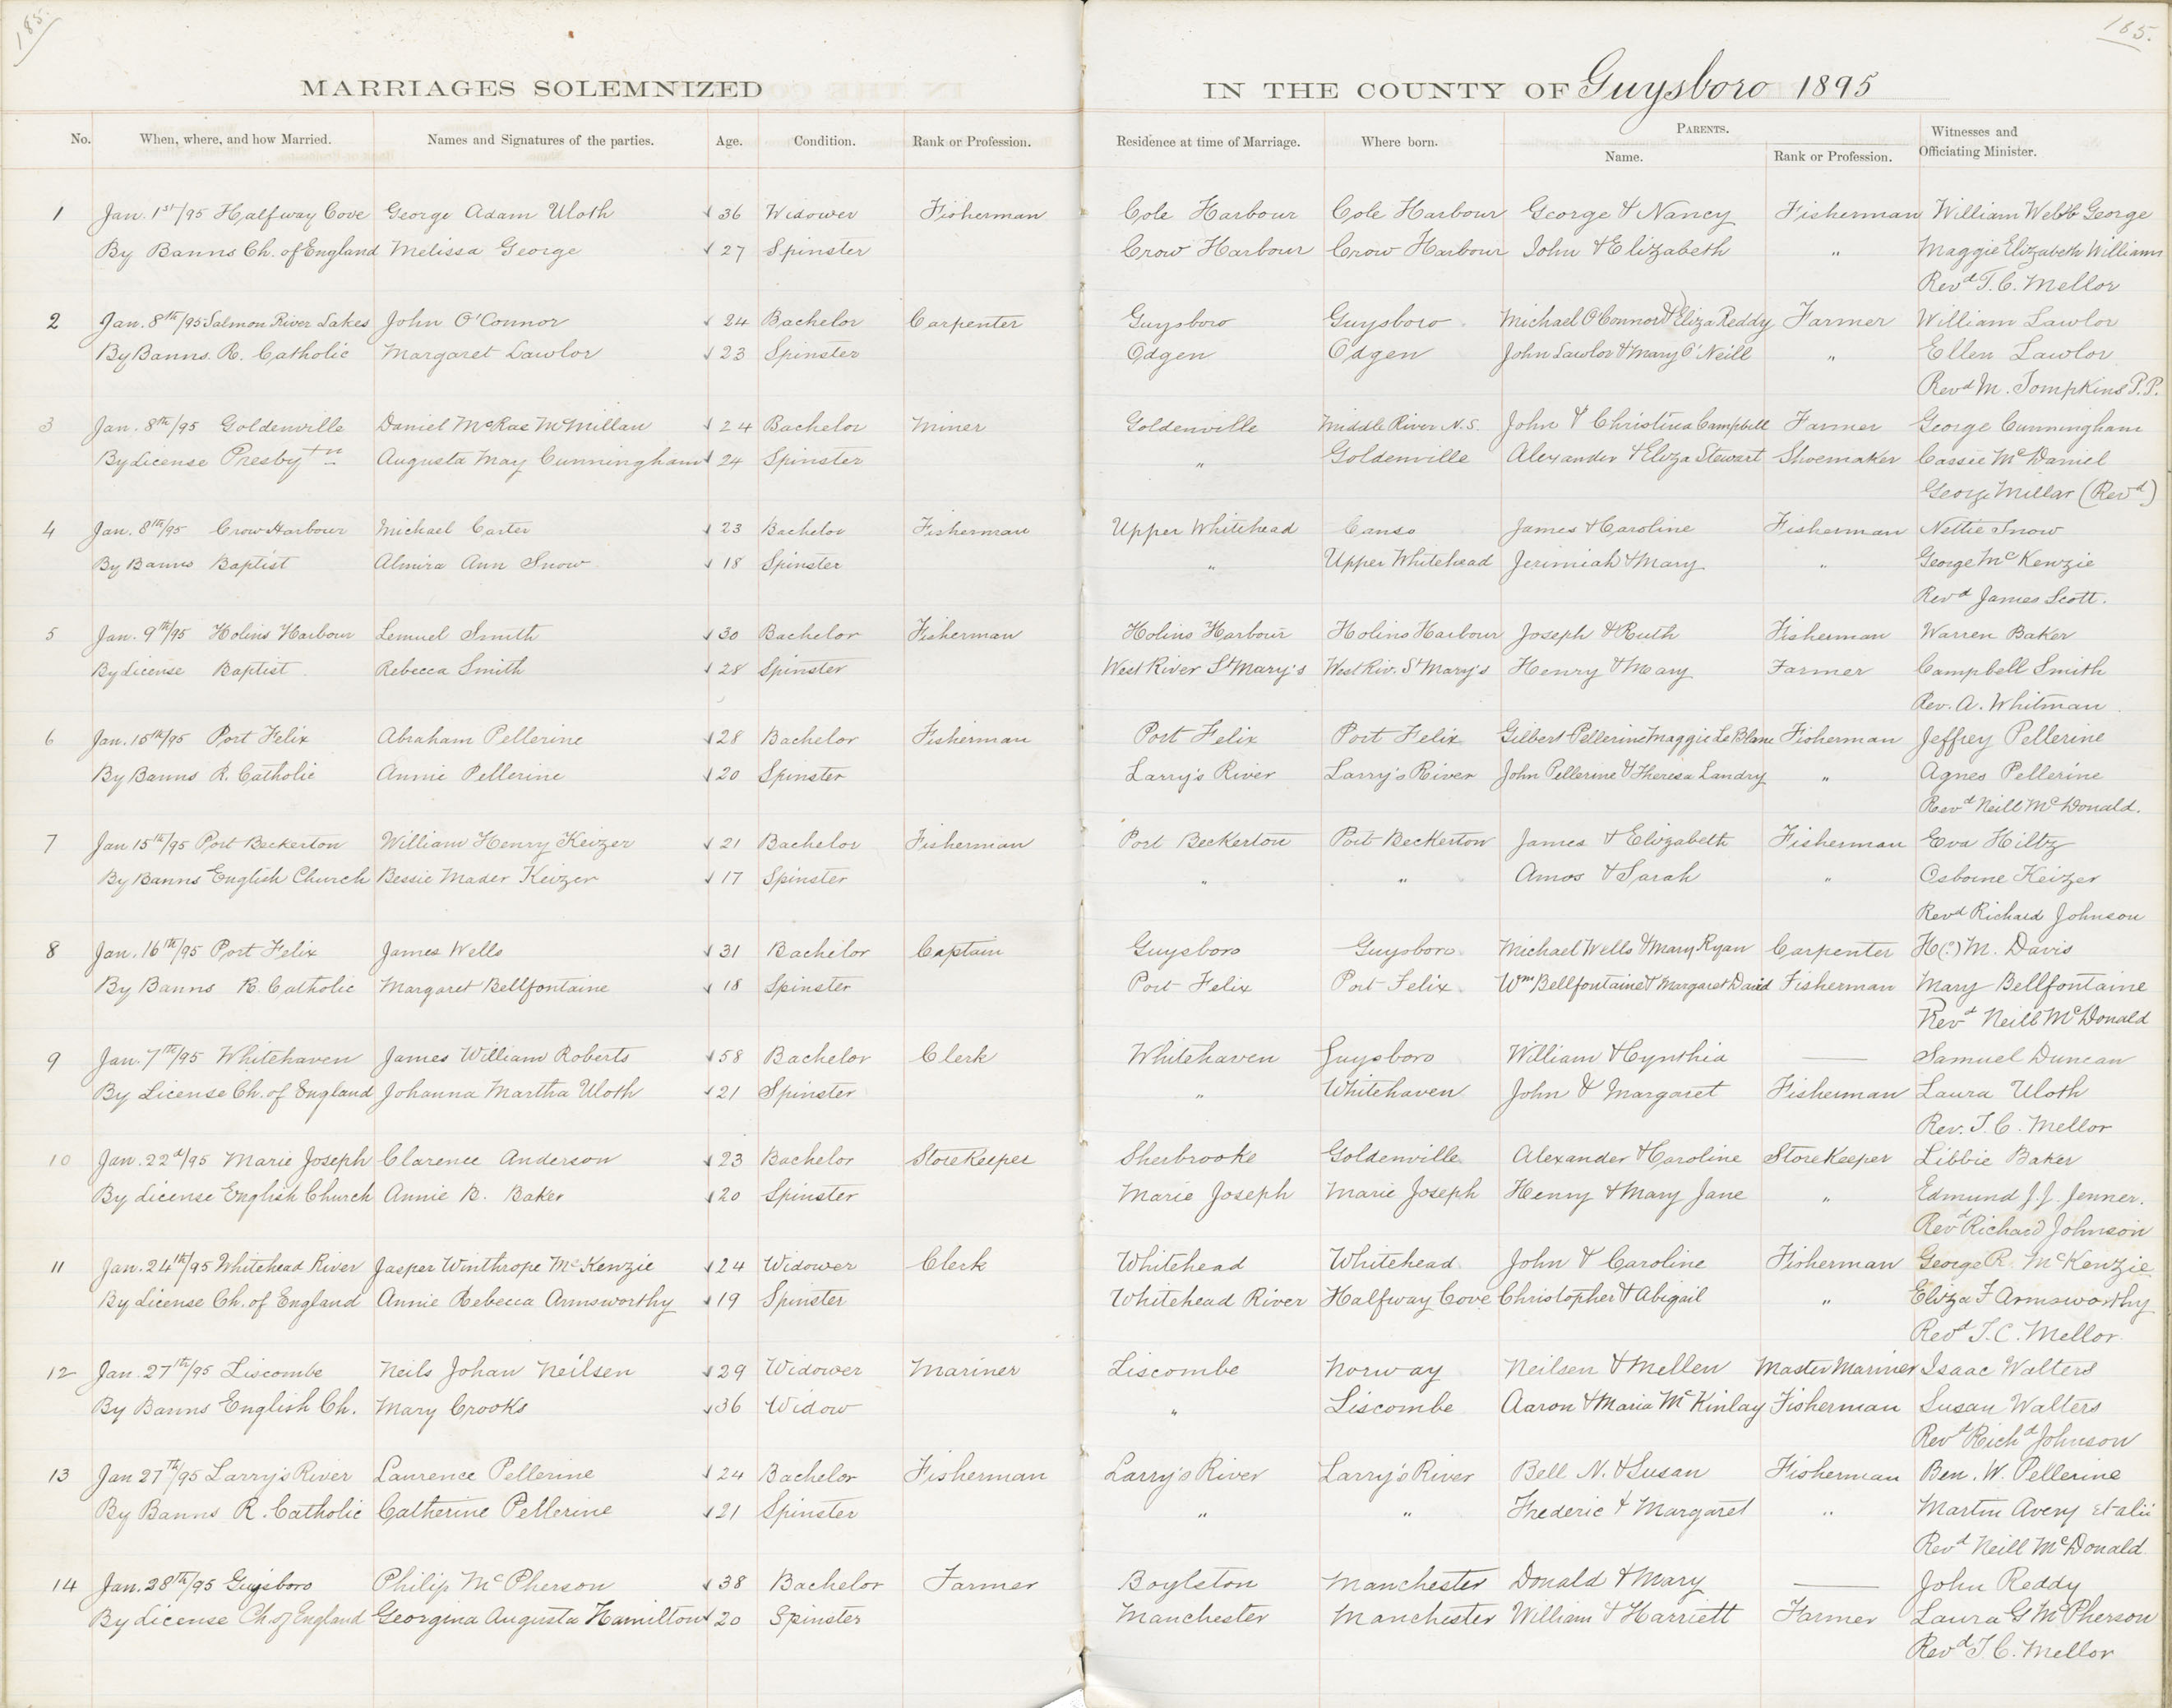 185.
185.
MARRIAGES SOLEMNIZED IN THE COUNTY OF Guysboro 1895
No. When, where, and how Married. Names and Signatures of the parties. Age. Condition. Rank or Profession. Residence at time of Marriage. Where born. PARENTS. Name. Rank or Profession. Witnesses and Officiating Minister.
1 Jan. 1st/95 Halfway Cove George Adam Uloth 36 Widower Fisherman Cole Harbour Cole Harbour George & Nancy Fisherman William Webb George
By Banns Ch. of England Melissa George 27 Spinster Crow Harbour Crow Harbour John & Elizabeth " Maggie Elizabeth Williams
Revd T. C. Mellor
2 Jan. 8th/95 Salmon River Lakes John O'Connor 24 Bachelor Carpenter Guysboro Guysboro Michael O'Connor & Eliza Reddy Farmer William Lawlor
By Banns. R. Catholic Margaret Lawlor 23 Spinster Odgen Odgen John Lawlor & Mary O'Neill " Ellen Lawlor
Revd M. Tompkins P.P.
3 Jan. 8th/95 Goldenville Daniel McRae McMillan 24 Bachelor Miner Goldenville Middle River N.S. John & Christina Campbell Farmer George Cunningham
By License Presbytn Augusta May Cunningham 24 Spinster " Goldenville Alexander & Eliza Stewart Shoemaker Cassie McDaniel
George Millar (Revd)
4 Jan. 8th/95 Crow Harbour Michael Carter 23 Bachelor Fisherman Upper Whitehead Canso James & Caroline Fisherman Nettie Snow
By Banns Baptist Almira Ann Snow 18 Spinster " Upper Whitehead Jerimiah & Mary " George McKenzie
Revd James Scott.
5 Jan. 9th/95 Holins Harbour Lemuel Smith 30 Bachelor Fisherman Holins Harbour Holins Harbour Joseph & Ruth Fisherman Warren Baker
By License Baptist Rebecca Smith 28 Spinster West River St Mary's West Riv. St Mary's Henry & Mary Farmer Campbell Smith
Rev. A. Whitman
6 Jan. 15th/95 Port Felix Abraham Pellerine 28 Bachelor Fisherman Port Felix Port Felix Gilbert Pellerine Maggie LeBlanc Fisherman Jeffrey Pellerine
By Banns R. Catholic Annie Pellerine 20 Spinster Larry's River Larry's River John Pellerine & Theresa Landry " Agnes Pellerine
Revd Neill McDonald.
7 Jan 15th/95 Port Beckerton William Henry Keizer 21 Bachelor Fisherman Port Beckerton Port Beckerton James & Elizabeth Fisherman Eva Hiltz
By Banns English Church Bessie Mader Keizer 17 Spinster " " Amos & Sarah " Osborne Keizer
Revd Richard Johnson
8 Jan. 16th/95 Port Felix James Wells 31 Bachelor Captain Guysboro Guysboro Michael Wells & Mary Ryan Carpenter H(?) M. Davis
By Banns R. Catholic Margaret Bellfontaine 18 Spinster Port Felix Port Felix Wm Bellfontaine & Margaret David Fisherman Mary Bellfontaine
Revd Neill McDonald
9 Jan. 7th/95 Whitehaven James William Roberts 58 Bachelor Clerk Whitehaven Guysboro William & Cynthia — Samuel Duncan
By License Ch. of England Johanna Martha Uloth 21 Spinster " Whitehaven John & Margaret Fisherman Laura Uloth
Rev. T. C. Mellor
10 Jan. 22d/95 Marie Joseph Clarence Anderson 23 Bachelor StoreKeeper Sherbrooke Goldenville Alexander & Caroline StoreKeeper Libbie Baker
By License English Church Annie B. Baker 20 Spinster Marie Joseph Marie Joseph Henry & Mary Jane " Edmund J. J. Jenner.
Revd Richard Johnson
11 Jan. 24th/95 Whitehead River Jasper Winthrope McKenzie 24 Widower Clerk Whitehead Whitehead John & Caroline Fisherman George R. McKenzie
By License Ch. of England Annie Rebecca Armsworthy 19 Spinster Whitehead River Halfway Cove Christopher & Abigail " Eliza F Armsworthy
Revd T. C. Mellor
12 Jan. 27th/95 Liscombe Neils Johan Neilsen 29 Widower Mariner Liscombe Norway Neilsen & Mellen Master Mariner Isaac Walters
By Banns English Ch. Mary Crooks 36 Widow " Liscombe Aaron & Maria McKinlay Fisherman Susan Walters
Revd Richd Johnson
13 Jan 27th/95 Larry's River Laurence Pellerine 24 Bachelor Fisherman Larry's River Larry's River Bell N. & Susan Fisherman Ben. W. Pellerine
By Banns R. Catholic Catherine Pellerine 21 Spinster " " Frederic & Margaret " Martin Avery et alii
Revd Neill McDonald
14 Jan. 28th/95 Guysboro Philip McPherson 38 Bachelor Farmer Boylston Manchester Donald & Mary — John Reddy
By License Ch. of England Georgina Augusta Hamilton 20 Spinster Manchester Manchester William & Harriett Farmer Laura G McPherson
Revd T. C. Mellor